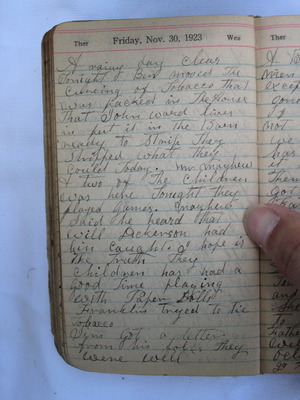 Ther Friday, Nov. 30, 1923 Wea
A rainy day clear
tonight Ben moved the
Cureing of Tobacco that
was packed in the House
that John ward lives
in put it in the Barn
ready to Strip They
stripped what they
could today. Mr. Mayhew
& two of The Children
was here tonight they
played games. Mayhew
Said he heard that
Will Dickerson had
bin caught. I hope is
the Truth They
Children has had a
good Time playing
with Paper Dolls
Franklin tryed to tie
tobacco
Got a letter
from his folks They
were well
Ther